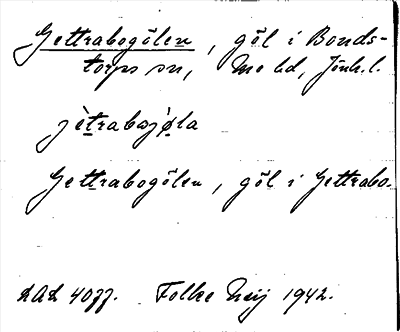 Gettrabogölen, göl i Bonds-
torps sn, Mo hd, Jönk. l.
jètrabωjø̀la
Gettrabogölen, göl i Gettrabo.
LAL 4077. Folke Neij 1942.